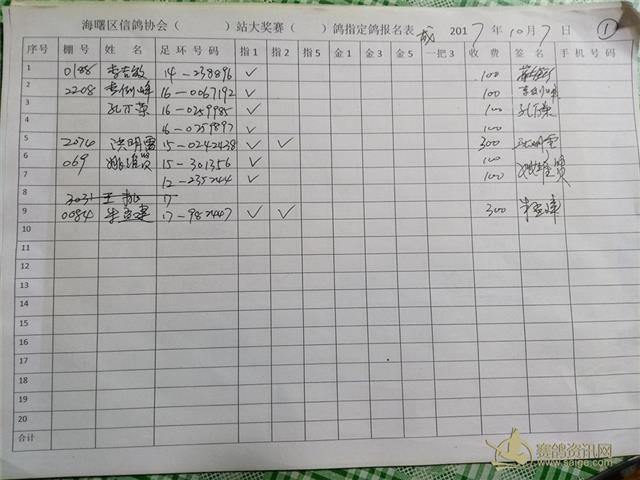 海曙区信鸽协会（ ）站大奖赛（ ）鸽指定鸽报名表 成 2017年10月7日 ①
序号 棚号 姓名 足环号码 指1 指2 指5 金1 金3 金5 一把3 收费 签名 手机号码
1 0188 14-238896 ✓ 100
2 2208 16-0067192 ✓ 100
3 孔万荣 16-0259985 ✓ 100 孔万荣
4 16-0259897 ✓ 100
5 2074 洪明雷 15-0242438 ✓ ✓ 300
6 069 15-301356 ✓ 100
7 12-235244 ✓ 100
8 3031 王 17
9 0084 17-982447 ✓ ✓ 300
10
11
12
13
14
15
16
17
18
19
20
合计
赛鸽资讯网
www.saige.com